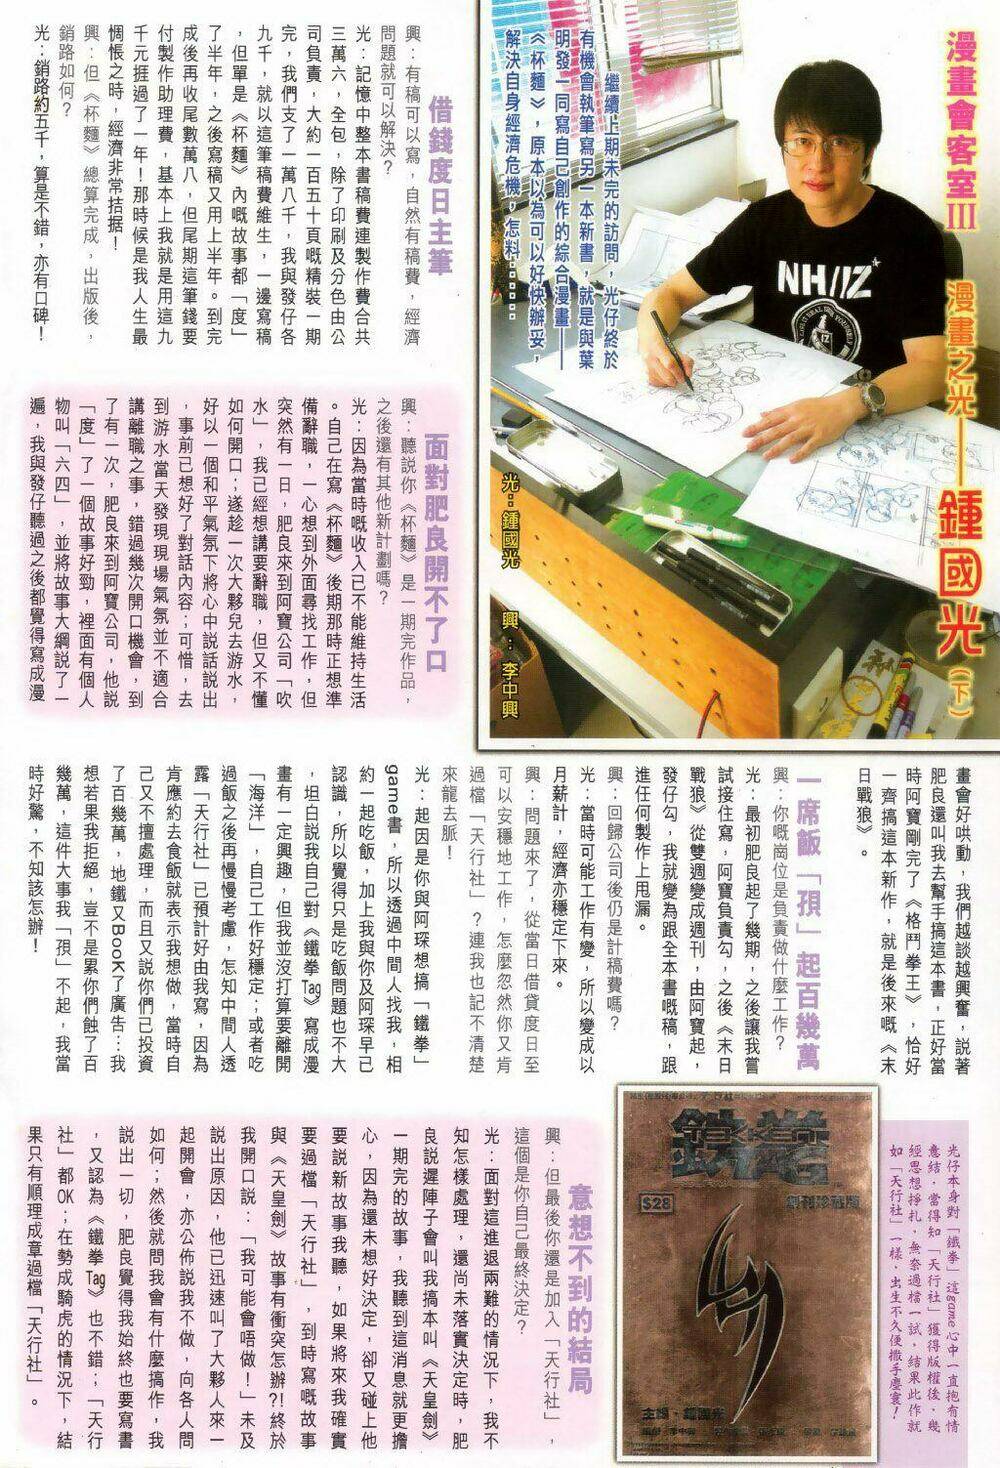 漫畫會客室III
漫畫之光——鍾國光(下)
繼續上期未完的訪問，光仔終於
有機會執筆寫另一本新書，就是與葉
明發一同寫自己創作的綜合漫畫——
《杯麵》，原本以為可以好快辦妥，
解決自身經濟危機，怎料……
光：鍾國光
興：李中興
NH/IZ
借錢度日主筆
興：有稿可以寫，自然有稿費，經濟
問題就可以解決？
光：記憶中整本書稿費連製作費合共
三萬六，全包，除了印刷及分色由公
司負責，大約一百五十頁嘅精裝一期
完，我們支了一萬八千，我與發仔各
九千，就以這筆稿費維生，一邊寫稿
，但單是《杯麵》內嘅故事都「度」
了半年，之後寫稿又用上半年。到完
成後再收尾數萬八，但尾期這筆錢要
付製作助理費，基本上我就是用這九
千元捱過了一年！那時候是我人生最
惆悵之時，經濟非常拮据！
興：但《杯麵》總算完成，出版後，
銷路如何？
光：銷路約五千，算是不錯，亦有口碑！
面對肥良開不了口
興：聽說你《杯麵》是一期完作品，
之後還有其他新計劃嗎？
光：因為當時嘅收入已不能維持生活
。自己在寫《杯麵》後期那時正想準
備辭職，一心想到外面尋找工作，但
突然有一日，肥良來到阿寶公司「吹
水」，我已經想講要辭職，但又不懂
如何開口；遂趁一次大夥兒去游水，
好以一個和平氣氛下將心中說話說出
，事前已想好了對話內容；可惜，去
到游水當天發現現場氣氛並不適合
講離職之事，錯過幾次開口機會，到
了有一次，肥良來到阿寶公司，他說
「度」了一個故事好勁，裡面有個人
物叫「六四」，並將故事大綱說了一
遍，我與發仔聽過之後都覺得寫成漫
畫會好哄動，我們越談越興奮，說著
肥良還叫我去幫手搞這本書，正好當
時阿寶剛完了《格鬥拳王》，恰好
一齊搞這本新作，就是後來嘅《末
日戰狼》。
一席飯「孭」起百幾萬
興：你嘅崗位是負責做什麼工作？
光：最初肥良起了幾期，之後讓我嘗
試接住寫，阿寶負責勾，之後《末日
戰狼》從雙週變成週刊，由阿寶起，
發仔勾，我就變為跟全本書嘅稿，跟
進任何製作上甩漏。
興：回歸公司後仍是計稿費嗎？
光：當時可能工作有變，所以變成以
月薪計，經濟亦穩定下來。
興：問題來了，從當日借貸度日至
可以安穩地工作，怎麼忽然你又肯
過檔「天行社」？連我也記不清楚
來龍去脈！
光：起因是你與阿琛想搞「鐵拳」
game書，所以透過中間人找我，相
約一起吃飯，加上我與你及阿琛早已
認識，所以覺得只是吃飯問題也不大
，坦白說我自己對《鐵拳Tag》寫成漫
畫有一定興趣，但我並沒打算要離開
「海洋」，自己工作好穩定；或者吃
過飯之後再慢慢考慮，怎知中間人透
露「天行社」已預計好由我寫，因為
肯應約去食飯就表示我想做，當時自
己又不擅處理，而且又說你們已投資
了百幾萬，地鐵又Book了廣告…我
想若果我拒絕，豈不是累你們蝕了百
幾萬，這件大事我「孭」不起，我當
時好驚，不知該怎辦！
光仔本身對「鐵拳」這game心中一直抱有情
意結，當得知「天行社」獲得版權後，幾
經思想掙扎，無奈過檔一試，結果此作就
如「天行社」一樣，出生不久便撒手塵寰！
鐵拳
TEKKEN TAG
$28
創刊珍藏版
主編・鍾國光
意想不到的結局
興：但最後你還是加入「天行社」，
這個是你自己最終決定？
光：面對這進退兩難的情況下，我不
知怎樣處理，還尚未落實決定時，肥
良說遲陣子會叫我搞本叫《天皇劍》
一期完的故事，我聽到這消息就更擔
心，因為還未想好決定，卻又碰上他
要說新故事我聽，如果將來我確實
要過檔「天行社」，到時寫嘅故事
與《天皇劍》故事有衝突怎辦?!終於
我開口說：「我可能會唔做！」未及
說出原因，他已迅速叫了大夥人來一
起開會，亦公佈說我不做，向各人問
如何；然後就問我會有什麼搞作，我
說出一切，肥良覺得我始終也要寫書
，又認為《鐵拳Tag》也不錯；「天行
社」都OK；在勢成騎虎的情況下，結
果只有順理成章過檔「天行社」。